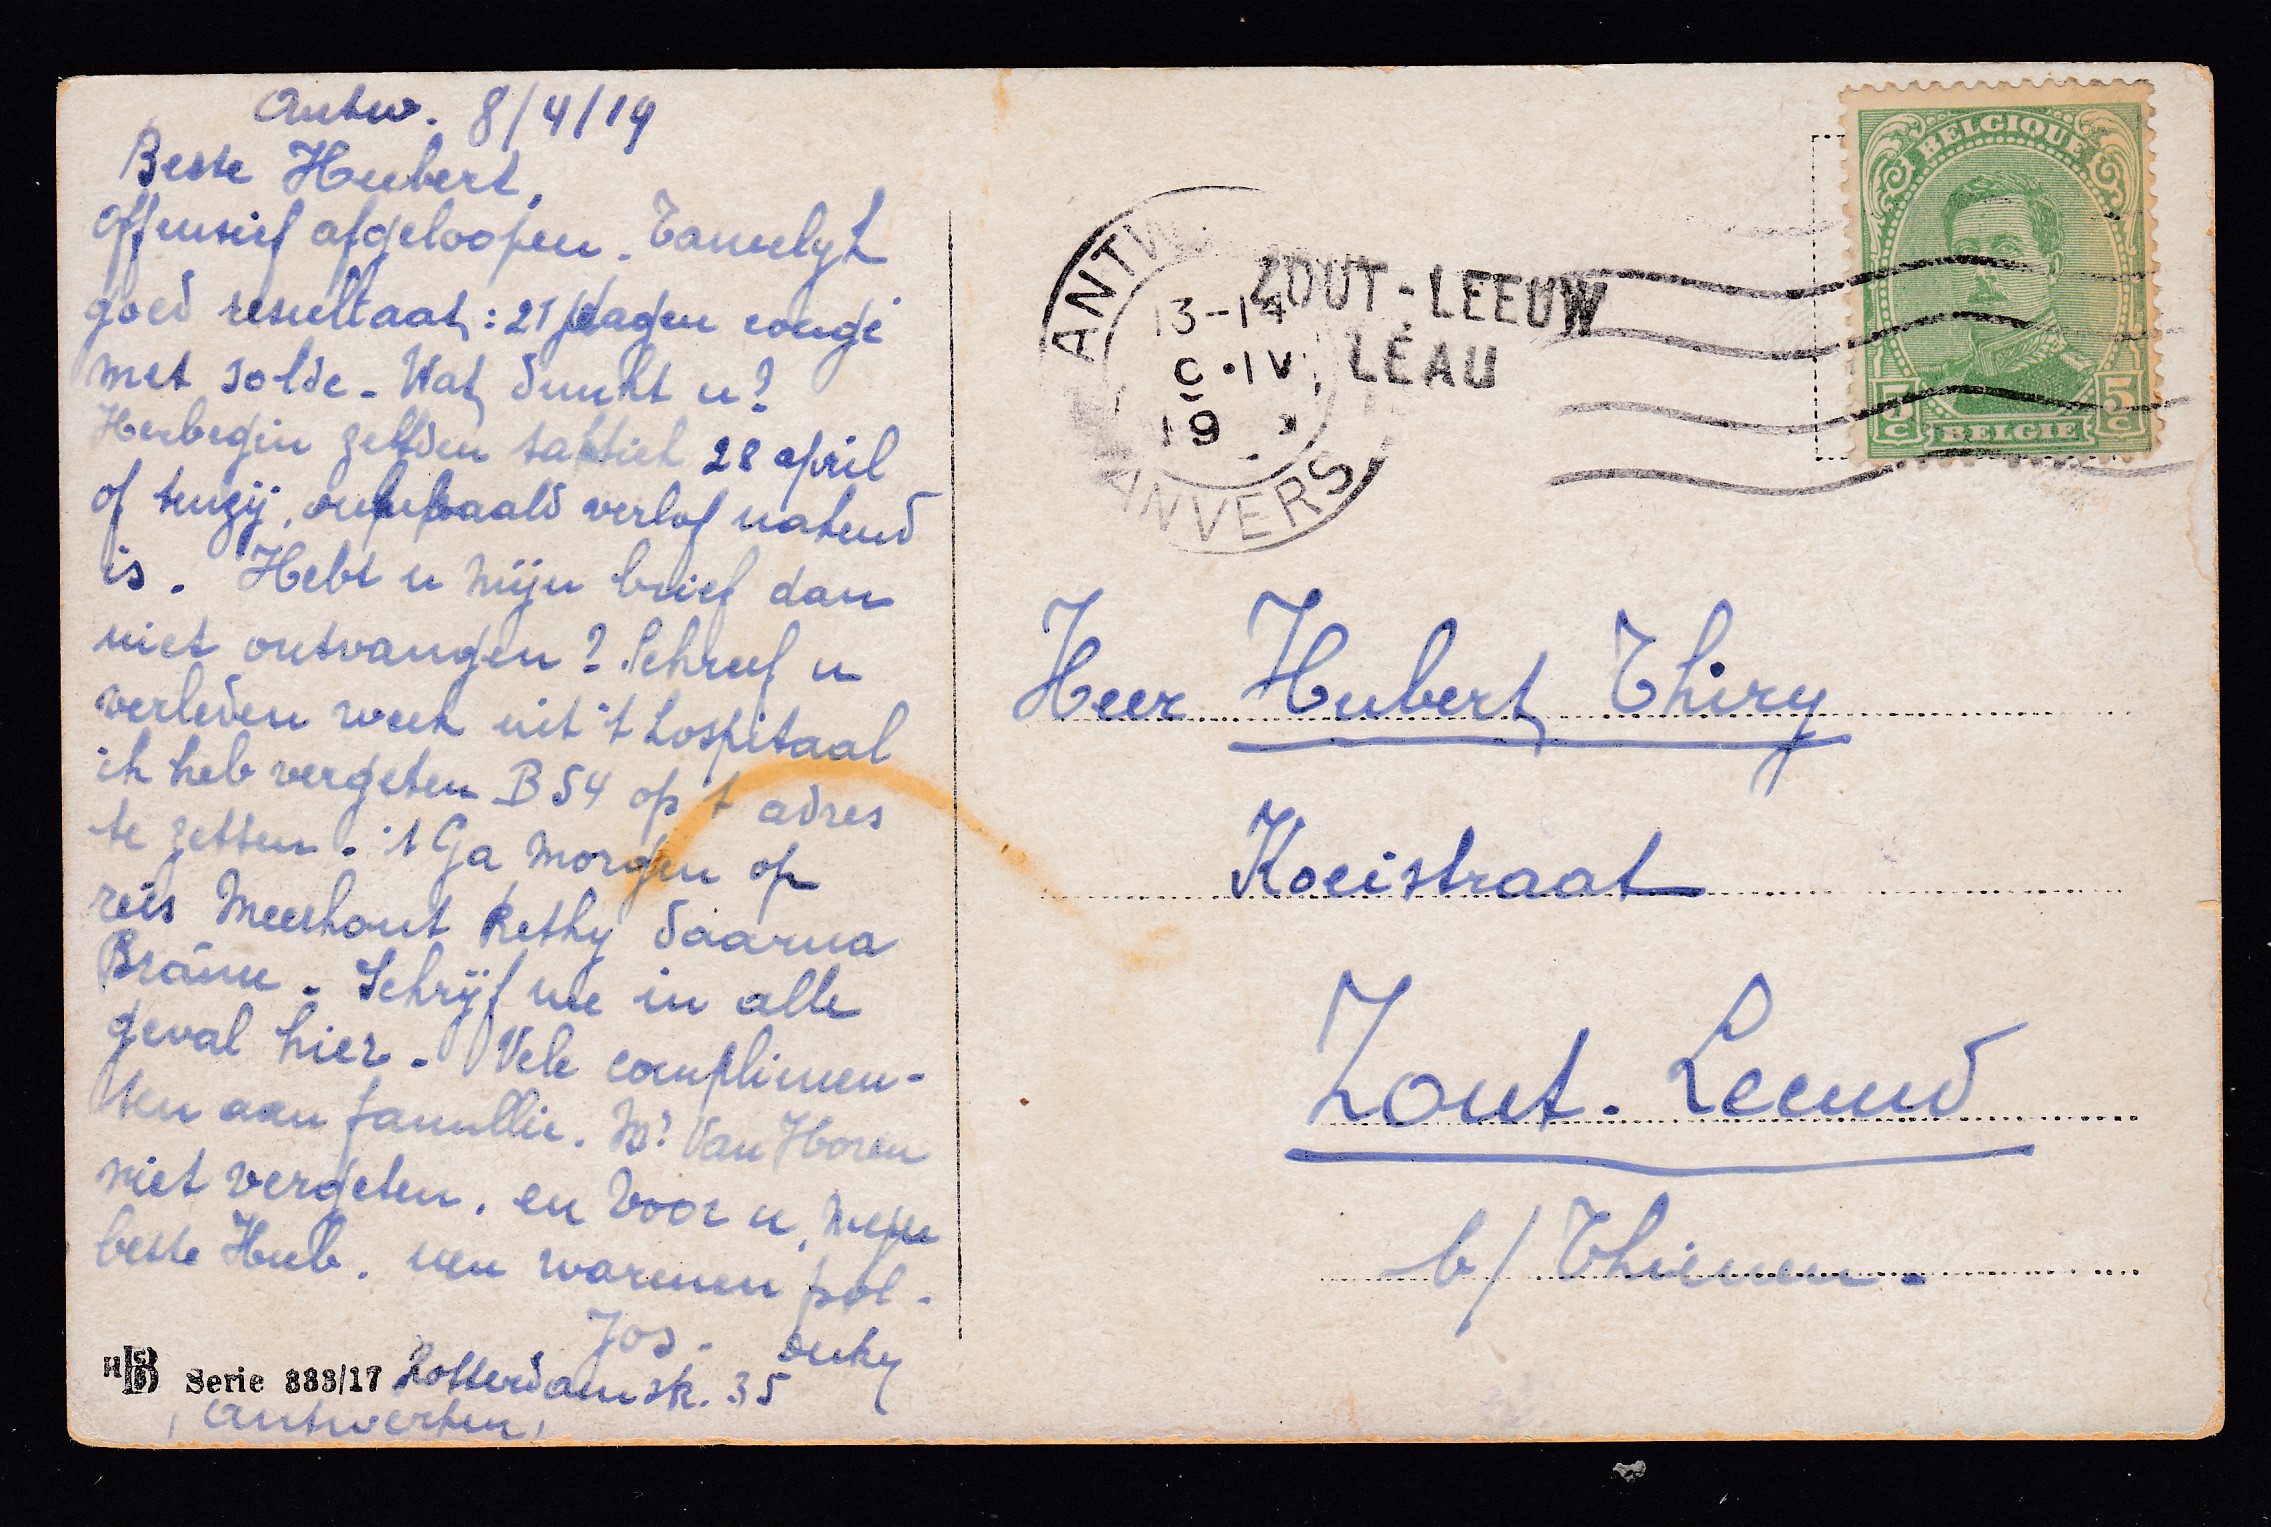 Antw. 8/4/19
Beste Hubert,
Offensief afgeloopen. Tamelyk
goed resultaat: 21 dagen congé
met solde - Wat dunkt u?
Herbegin zelfden taktiek 28 april
of tenzij, onbepaald verlof nakend
is. Hebt u mijn brief dan
niet ontvangen? Schreef u
verleden week uit 't hospitaal
ik heb vergeten B54 op 't adres
te zetten. 't Ga morgen op
reis Meerhout Rethy daarna
Braine. Schrijf me in alle
geval hier. Vele complimen-
ten aan famillie. Mr Van Horen
niet vergeten. en voor u, mijn
beste Hub. nen warmen pol.
Jos.
Serie 883/17 Rotterdamstr. 35
Antwerpen
ANTW
13-14
C•IV
19
ANVERS
ZOUT-LEEUW
LÉAU
BELGIQUE
5 C 5 C
BELGIË
Heer Hubert Thiry
Koeistraat
Zout-Leeuw
b/ Thienen.